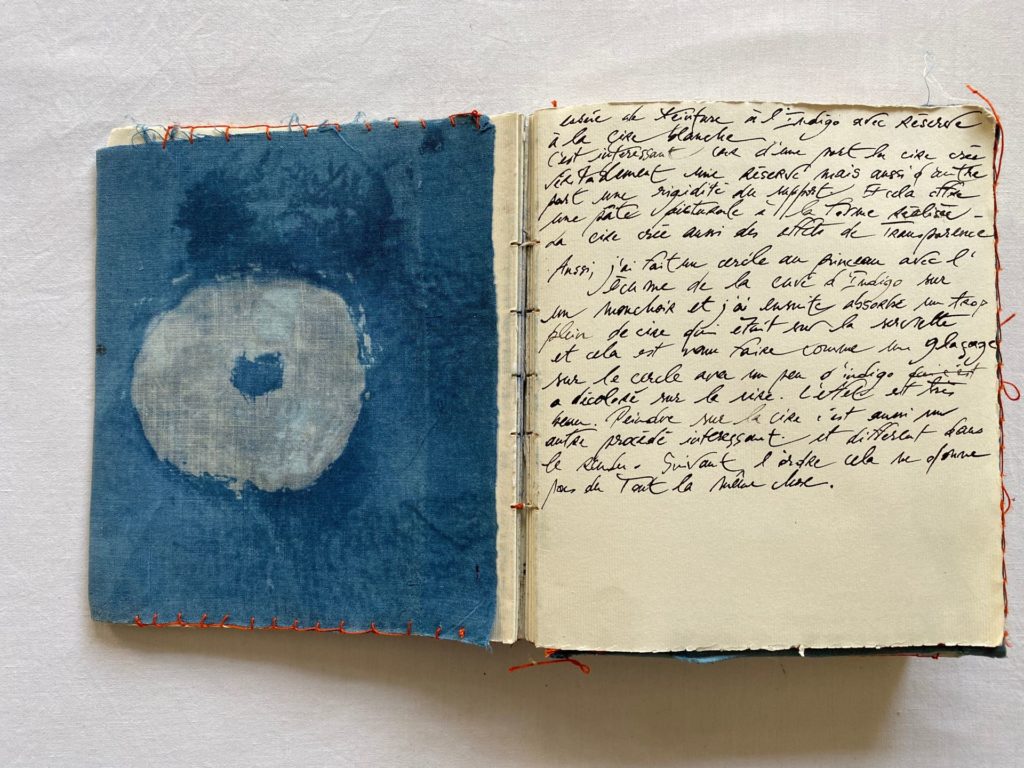 de Teinture à l'Indigo avec Réserve
à la cire blanche
c'est intéressant car d'une part la cire crée
véritablement une Réserve mais aussi d'autre
part une rigidité du support. Et cela offre
une pâte picturale à la forme Réalisée -
La cire crée aussi des effets de Transparence
Aussi, j'ai fait un cercle au pinceau avec l'
écume de la cuve d'Indigo sur
un mouchoir et j'ai ensuite absorbé un trop
plein de cire qui était sur la serviette
et cela est venu faire comme un glaçage
sur le cercle avec un peu d'indigo
a décoloré sur la cire. L'effet est très
beau. Peindre sur la cire c'est aussi un
autre procédé intéressant et différent dans
le rendu. Suivant l'ordre cela ne donne
pas du Tout la même chose.